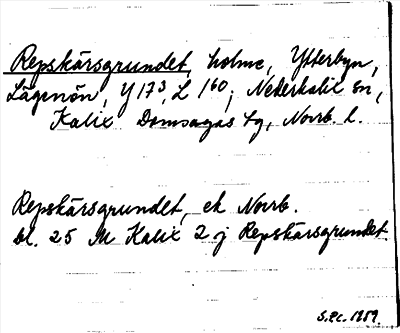 Repskärsgrundet, holme, Ytterbyn,
Lägenön, Y 173, L 160; Nederkalix sn,
Kalix Domsagas tg, Norrb. l.
Repskärsgrundet, ek Norrb.
bl. 25 M Kalix 2 j Repskärsgrundet.
S.P.C. 1959